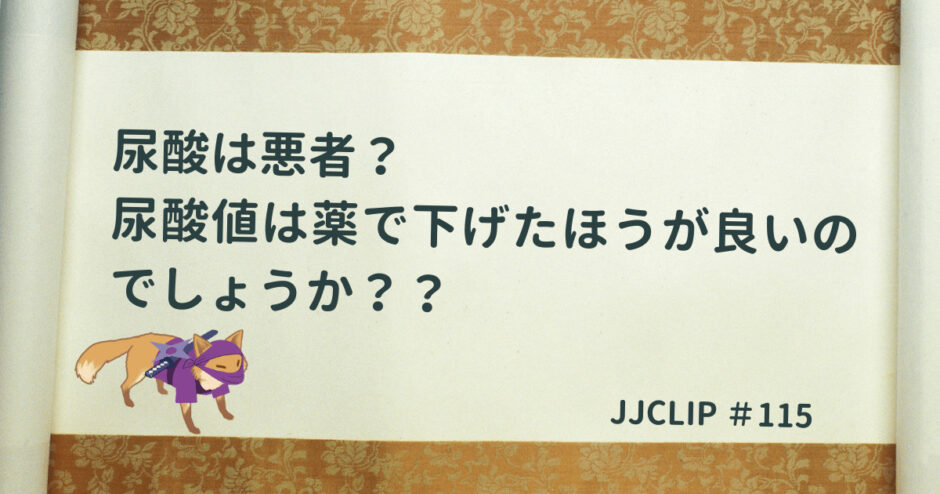 尿酸は悪者？
尿酸値は薬で下げたほうが良いの
でしょうか？？
JJCLIP ＃115